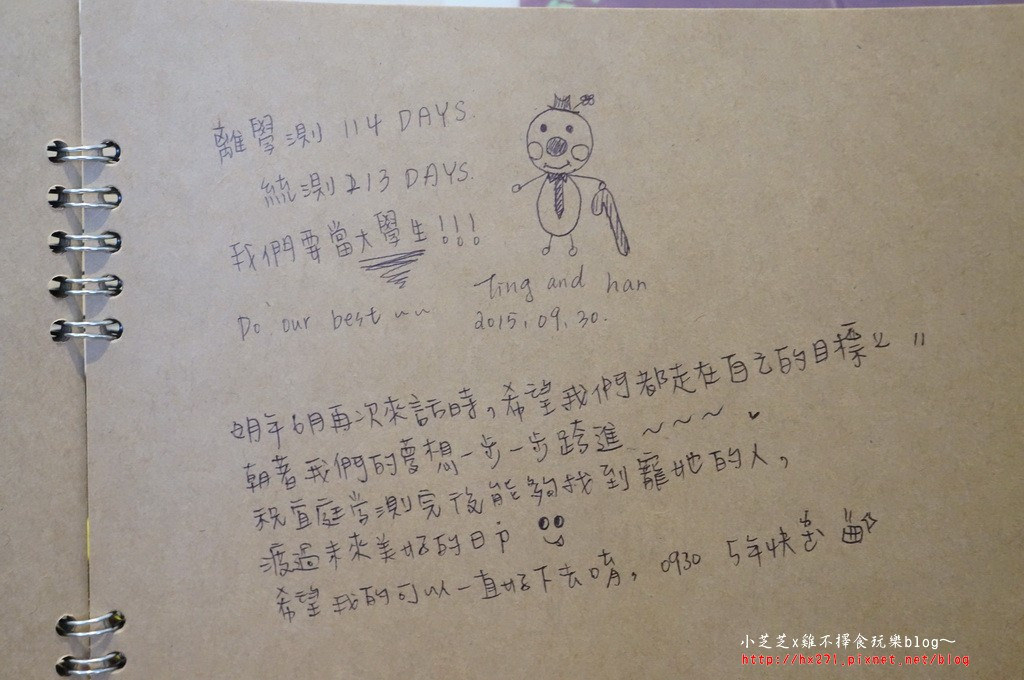 離學測 114 DAYS.
統測 213 DAYS.
我們要當大學生!!!
Do our best ~~
Ting and han
2015.09.30.
明年6月再次來話時,希望我們都走在自己的目標上 "
朝著我們的夢想一步一步跨進 ~~~
祝宜庭學測完後能夠找到寵她的人,
渡過未來美好的日子
希望我的可以一直好下去唷, 0930 5年快
小芝芝x雞不擇食玩樂blog~
http://hx271.pixnet.net/blog